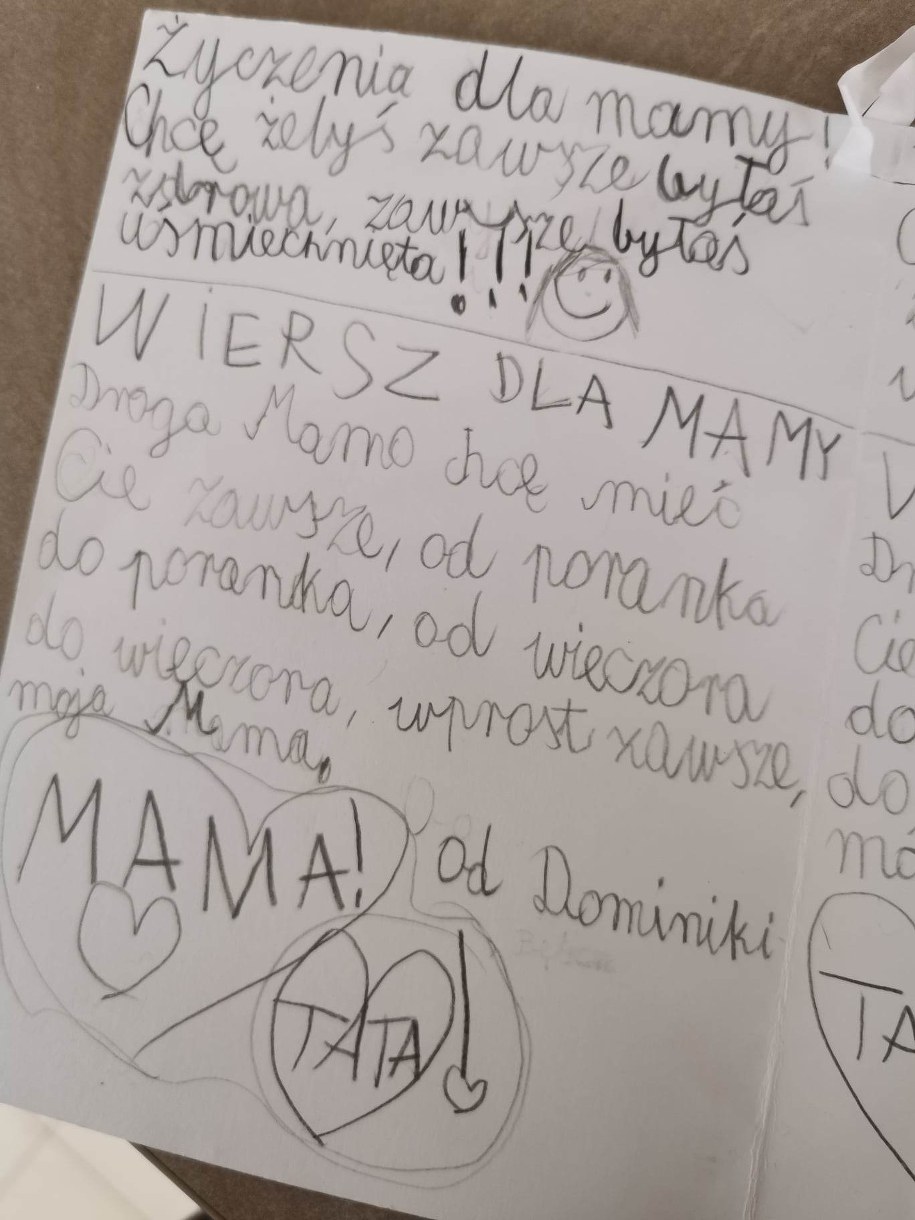 Życzenia dla mamy!
Chcę żebyś zawsze byłaś
zdrowa, zawsze byłaś
uśmiechnięta!!!
WiERSZ DLA MAMY
Droga Mamo chcę mieć
Cię zawsze, od poranka
do poranka, od wieczora
do wieczora, wprost zawsze,
moja Mama.
MAMA!
od Dominiki
TATA!
Dr
Cię
do
do
TA